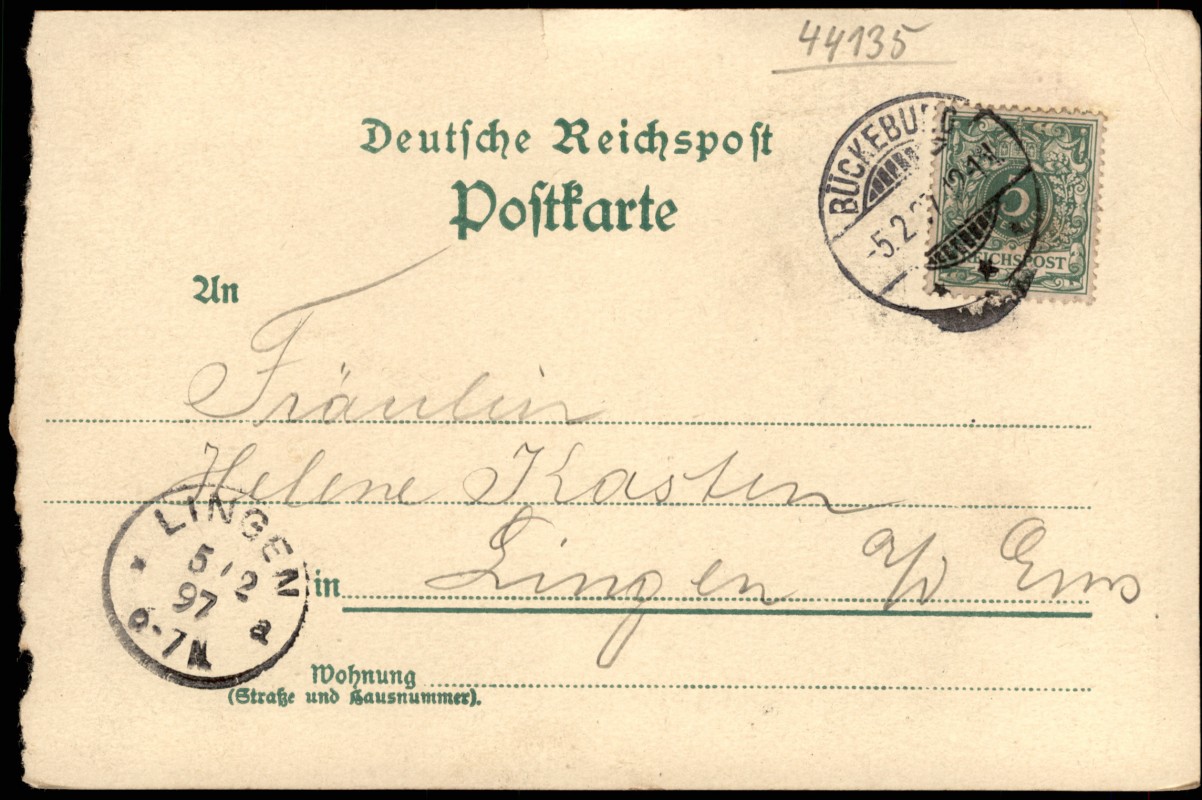 44135
Deutsche Reichspost
Postkarte
BÜCKEBURG
-5.2.97 12-1N
REICHSPOST
An
Fräulein
Helene Kasten
in Lingen a/d Ems
LINGEN
5/2
97
6-7N
a
Wohnung
(Straße und Hausnummer).